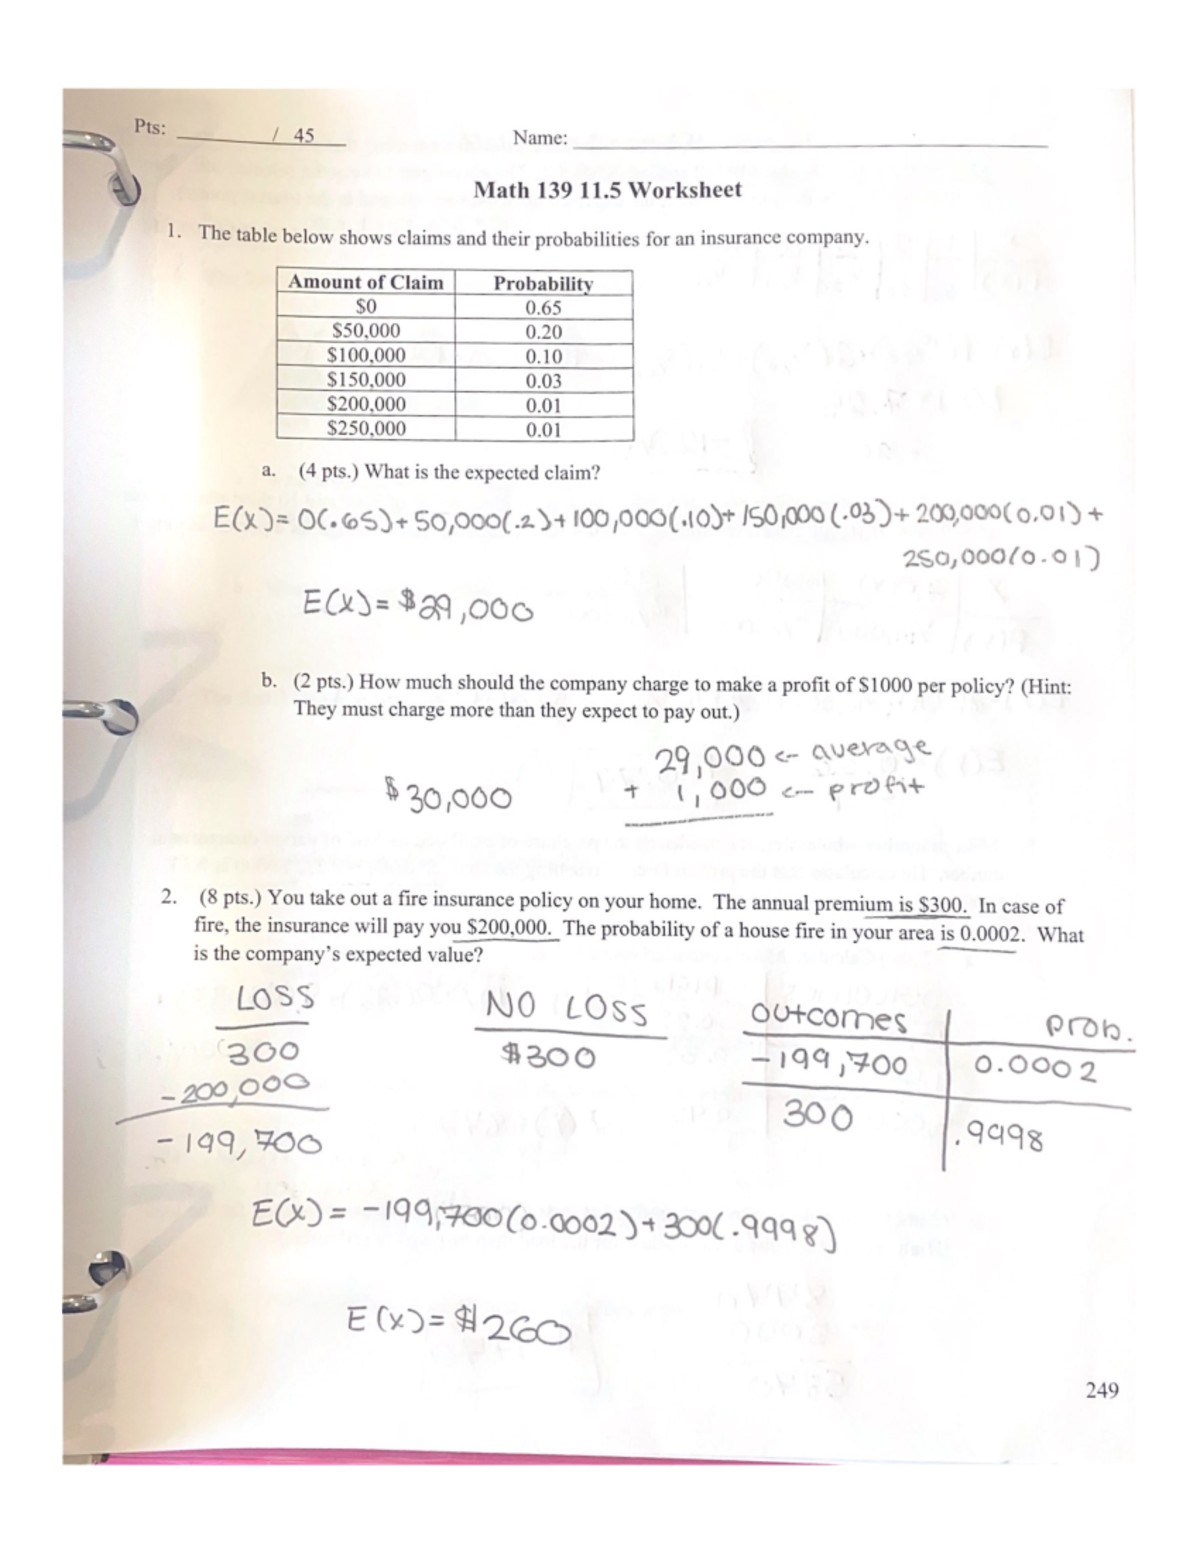 Pts: ________ / 45
Name: ________
Math 139 11.5 Worksheet
1. The table below shows claims and their probabilities for an insurance company.
Amount of Claim Probability
$0 0.65
$50,000 0.20
$100,000 0.10
$150,000 0.03
$200,000 0.01
$250,000 0.01
a. (4 pts.) What is the expected claim?
E(X)= 0(.65)+50,000(.2)+100,000(.10)+150,000(.03)+200,000(0.01)+
250,000(0.01)
E(X)= $29,000
b. (2 pts.) How much should the company charge to make a profit of $1000 per policy? (Hint:
They must charge more than they expect to pay out.)
29,000 <- average
$30,000
+ 1,000 <- profit
2. (8 pts.) You take out a fire insurance policy on your home. The annual premium is $300. In case of
fire, the insurance will pay you $200,000. The probability of a house fire in your area is 0.0002. What
is the company's expected value?
LOSS NO LOSS outcomes prob.
300 $300 -199,700 0.0002
-200,000
300 .9998
-199,700
E(X)= -199,700(0.0002)+300(.9998)
E(x)= $260
249